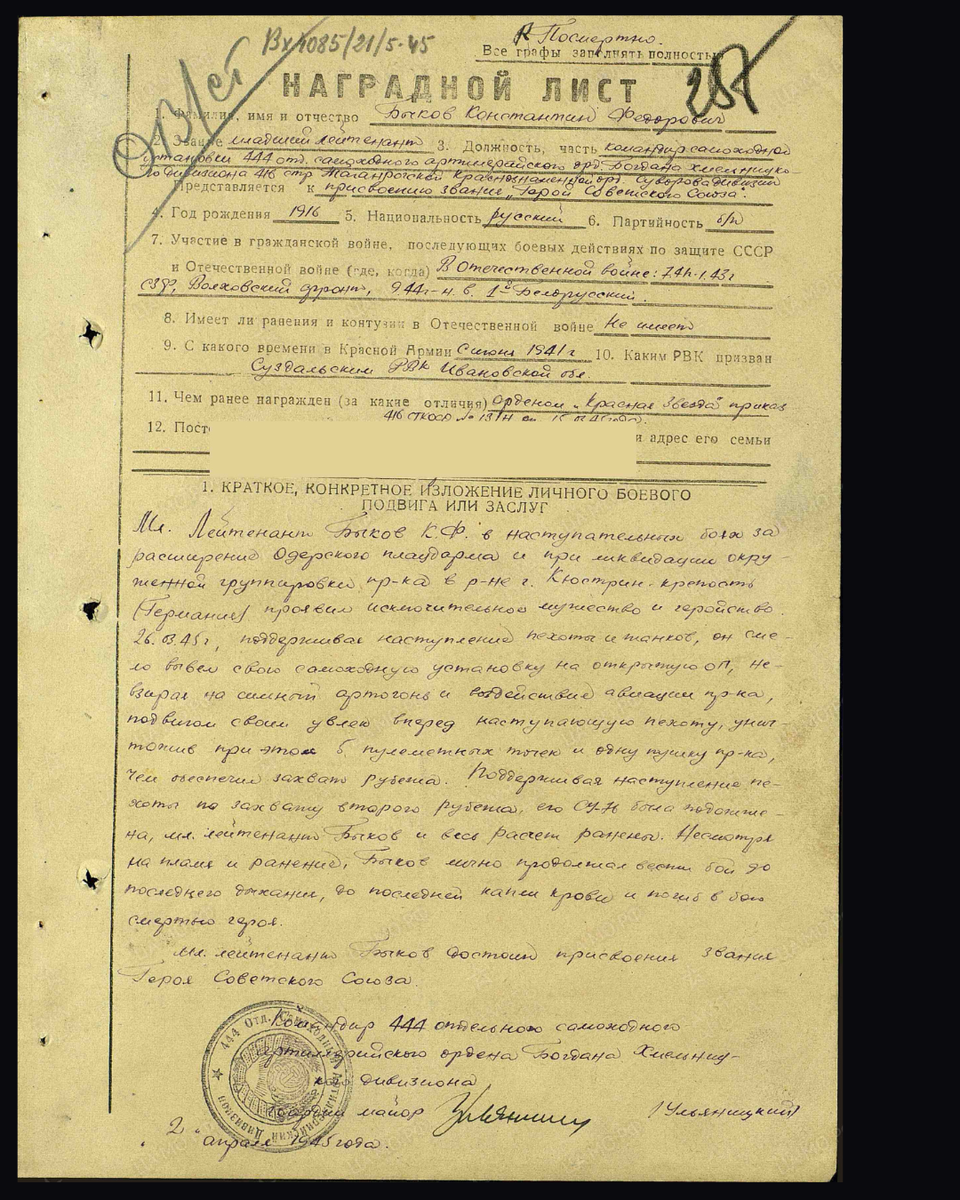 Вх 4085/21/5-45
Посмертно.
Все графы заполнять полностью
287
НАГРАДНОЙ ЛИСТ
1. Фамилия, имя и отчество Быков Константин Федорович
2. Звание младший лейтенант 3. Должность, часть командир самоходной
установки 444 отд. самоходного артиллерийского орд. Богдана Хмельницко-
го дивизиона 416 стр. Таганрогской Краснознаменной орд. Суворова дивизии
Представляется к присвоению звания „Герой Советского Союза".
4. Год рождения 1916 5. Национальность русский 6. Партийность б/п
7. Участие в гражданской войне, последующих боевых действиях по защите СССР
и Отечественной войне (где, когда) В Отечественной войне: 43г
СЗФ, Волховский фронт, 944г-н.в. 1й Белорусский.
8. Имеет ли ранения и контузии в Отечественной войне Не имеет
9. С какого времени в Красной Армии С июня 1941 г 10. Каким РВК призван
Суздальским РВК Ивановской обл.
11. Чем ранее награжден (за какие отличия) Орденом „Красная Звезда" приказ
416 от
12. Пост и адрес его семьи
1. КРАТКОЕ, КОНКРЕТНОЕ ИЗЛОЖЕНИЕ ЛИЧНОГО БОЕВОГО
ПОДВИГА ИЛИ ЗАСЛУГ
Мл. Лейтенант Быков К.Ф. в наступательных боях за
расширение Одерского плацдарма и при ликвидации окру-
женной группировки пр-ка в р-не г. Кюстрин-крепость
(Германия) проявил исключительное мужество и геройство.
26.03.45г, поддерживая наступление пехоты и танков, он сме-
ло вывел свою самоходную установку на открытую ОП, не-
взирая на сильный артогонь и воздействие авиации пр-ка,
подвигом своим увлек вперед наступающую пехоту, унич-
тожив при этом 5 пулеметных точек и одну пушку пр-ка,
чем обеспечил захват рубежа. Поддерживая наступление пе-
хоты по захвату второго рубежа, его СУ-76 была подожже-
на, мл. лейтенант Быков и весь расчет ранены. Несмотря
на пламя и ранение, Быков лично продолжал вести бой до
последнего дыхания, до последней капли крови и погиб в бою
смертью героя.
Мл. лейтенант Быков достоин присвоения звания
Героя Советского Союза.
Командир 444 отдельного самоходного
артиллерийского ордена Богдана Хмельниц-
кого дивизиона
гвардии майор (Ульяницкий)
„2" апреля 1945 года.
444 Отд. Самоходный Артиллерийский Дивизион